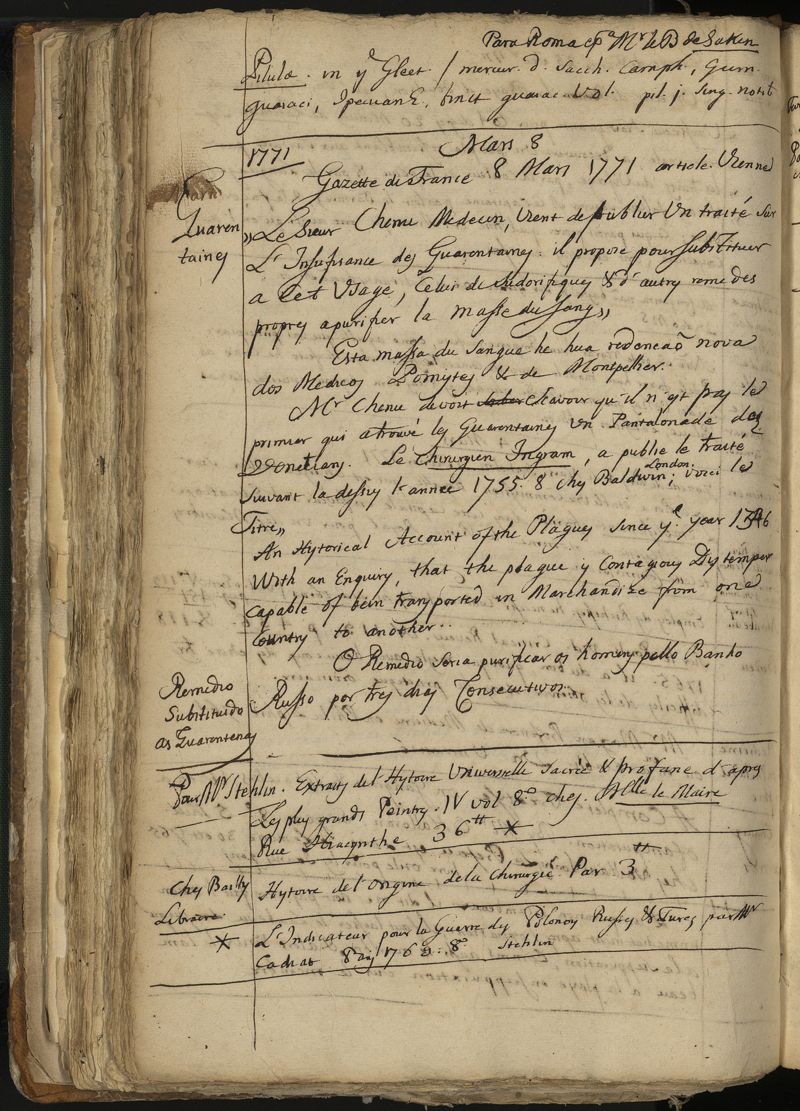 Para Roma cpa Mr. le B de Saken
Pilulæ. in ye Gleet / mercur. d. Sacch. Camph, Gum.
guaiaci, Ipecuanh, tinct guaiac. Vol. pil. j. sing. noctib
1771
Mars 8
Gazette de France 8 Mars 1771 article Vienne
Quaren
taines
„Le Sieur Chenu Medecin, Vient de publier Un traité sur
L'Insufisance des Quarentaines: il propose pour Substituer
a Cet Usage, Celui de Sudorifiques & d'autres remedes
propres a purifier la Masse du Sang„
Esta massa du Sangue he hua redeneaõ nova
dos Medicos & de Montpellier.
Mr Chenu devoit Chavoir qu'il n'est pas le
premier qui a trouvé les Quarentaines Un Pantalonade des
Venetians. Le Chirurgien Ingram, a publie le traité
Suivant la dessus l'année 1755. 8 chez Baldwin, London; voici le
Titre„
An Hystorical Account of the Plagues Since ye year 1346
With an Enquiry, that the plague is Contagious Distemper
Capable of bein transported in Marchandize from one
Country to another..
O Remedio seria purificar os homens pello Banho
Remedio
Subistituido
as Quarentenas
Russo por tres dias Consecutivos.
Pour Mr Stehlin. Extraits de l'Hystoire Universelle Sacrée & profane d'apres
Les plus grands Peintres. IV vol 8o chez. Mlle le Maire
Rue Hiacynthe 36tt *
Chez Bailly
Libraire.
Hystoire de l'origine de la Chirurgie Par 3tt
* L'Indicateur pour la Guerre des Polonois Russes & Turcs par Mr
8o Stehlin